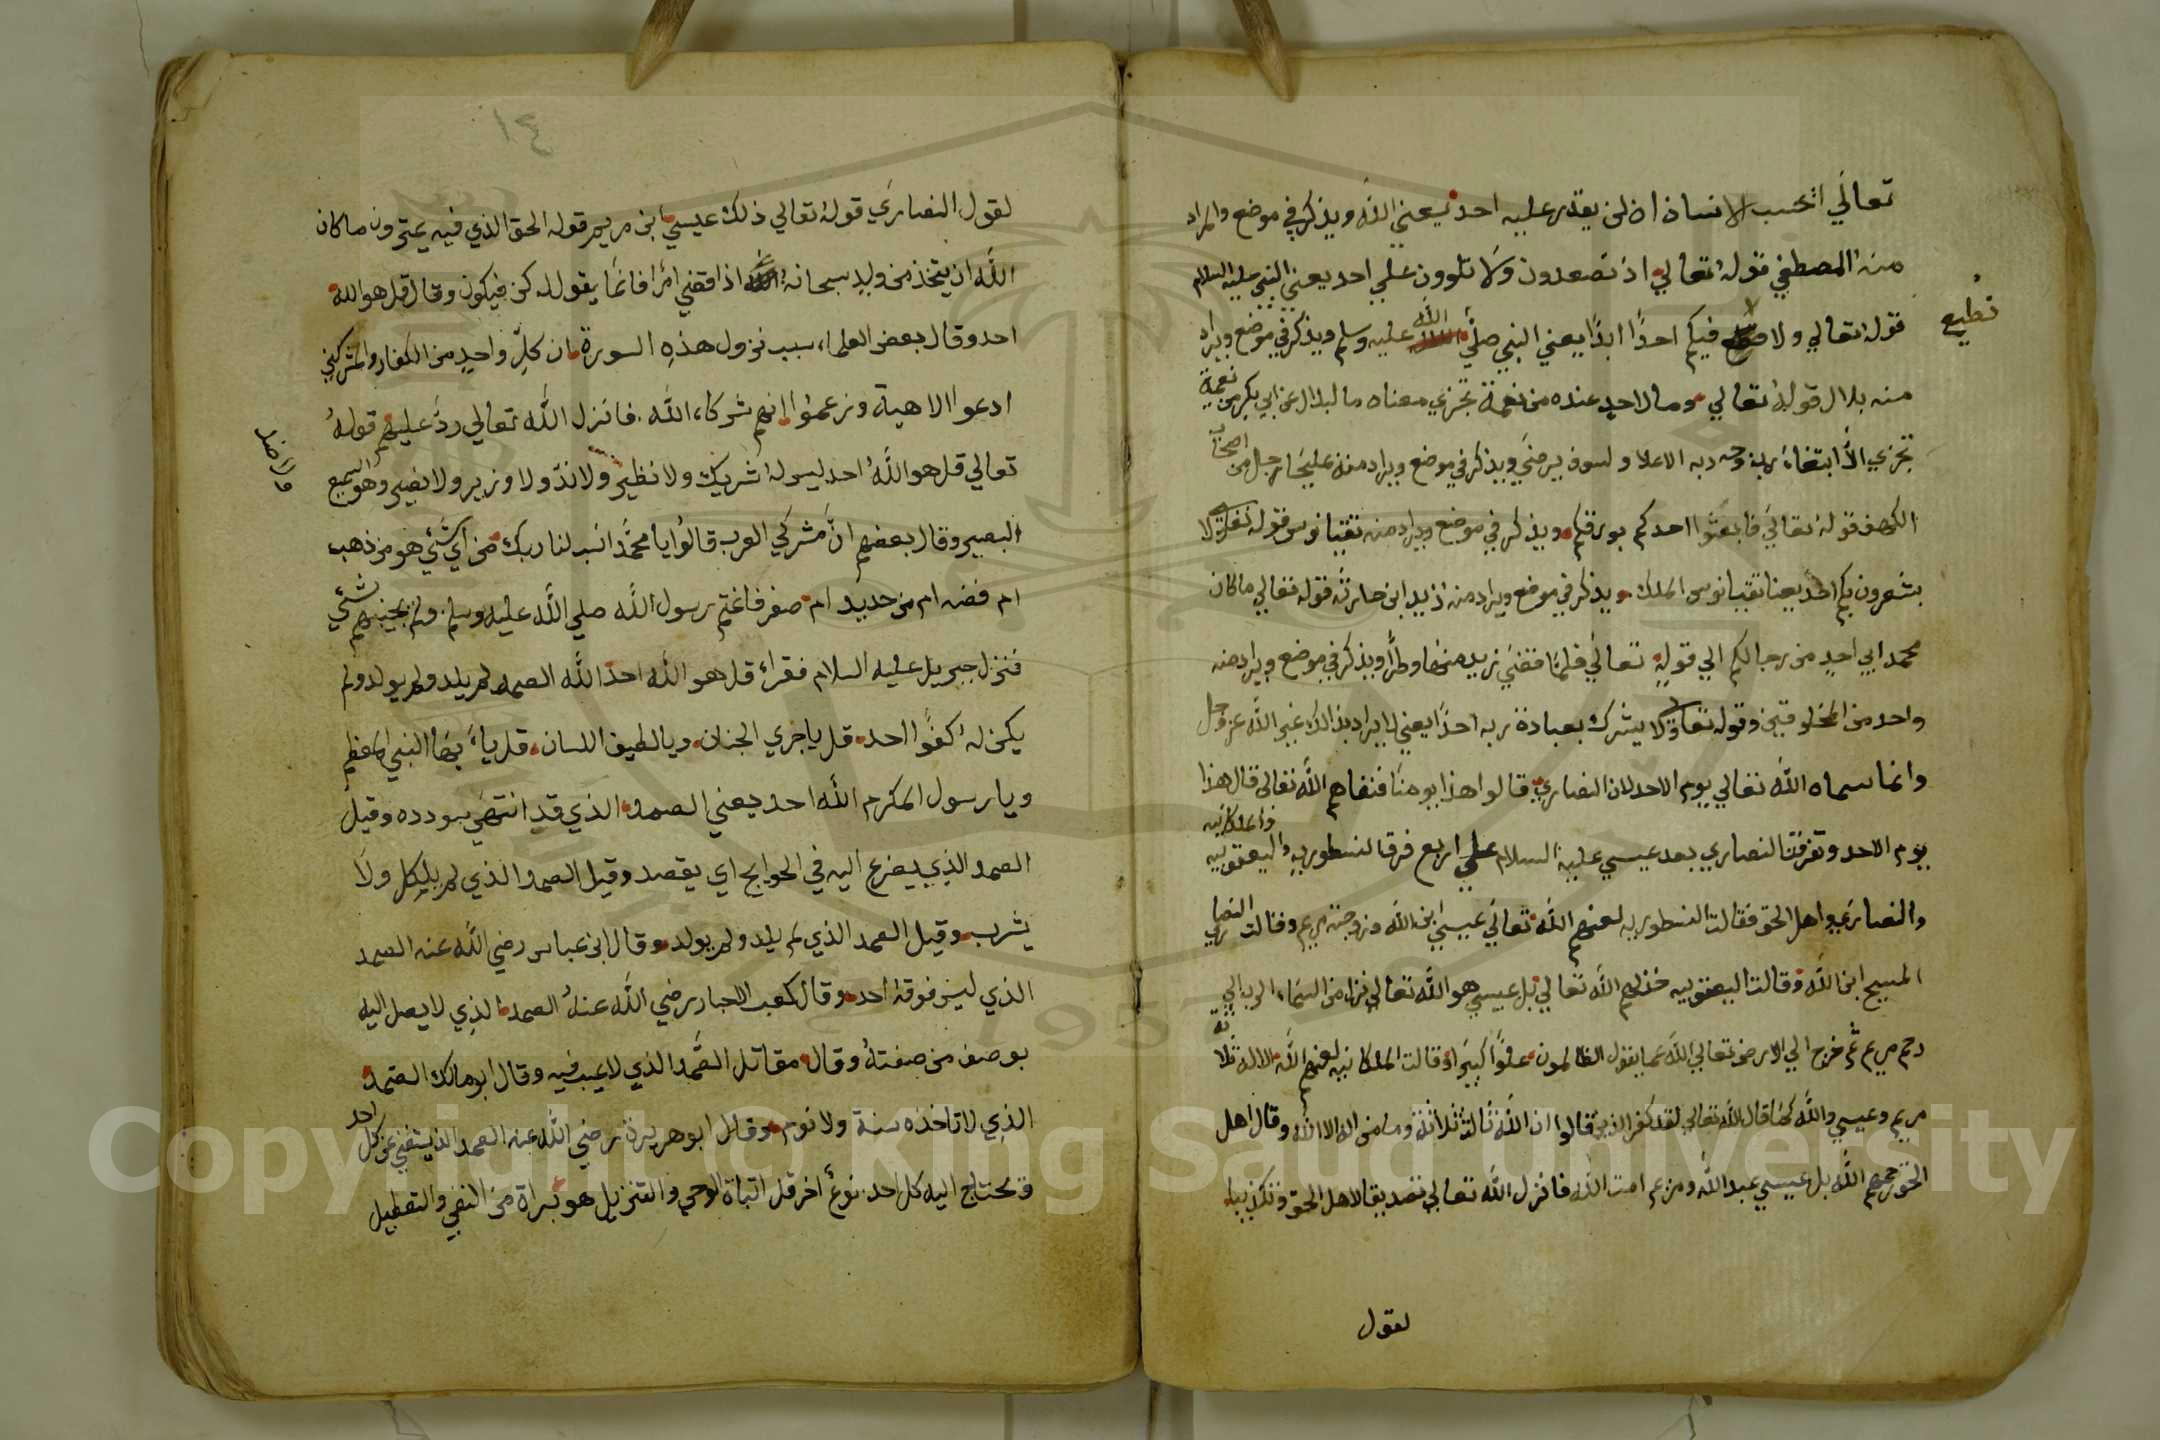 تعالى ايحسب الانسان ان لن يقدر عليه احد يعني الله ويذكر في موضع والمراد
منه المصطفي قوله تعالي اذ تصعدون ولا تلوون علي احد يعني النبي عليه السلام
تطيع
قوله تعالي ولا فيكم احدًا ابدًا يعني النبي صلي الله عليه وسلم ويذكر في موضع ويراد
منه بلال قوله تعالي وما لاحد عنده من نعمة تجزي معناه ما لبلال عن ابي بكر من نعمة
تجزي الا ابتغاء وجه ربه الاعلا ولسوف يرضي ويذكر في موضع ويراد منه رجل من اصحاب
الكهف قوله تعالي فابعثوا احدكم بورقكم ويذكر في موضع ويراد منه قوله لا
يشعرون بكم احد يعنا الملك ويذكر في موضع ويراد منه زيد ابن حارثه قوله تعالي ماكان
محمد ابي احد من رجالكم الي قوله تعالي فلما قضي زيد منها وطرًا ويذكر في موضع ويراد منه
واحد من المخلوقين وقوله تعالي ولا يشرك بعبادة ربه احدًا يعني لا يراد بذالك غير الله عز وجل
وانما سماه الله تعالي يوم الاحد لان النصاري قالوا هذا يومنا فنفاهم الله تعالي قال هذا
يوم الاحد وتفرقت النصاري بعد عيسي عليه السلام علي اربع فرق النسطوريه واليعقوبيه والملكانيه
والنصاري واهل الحق فقالت النسطوريه لعنهم الله تعالي عيسي ابن الله وزوجته مريم وقالت النصاري
المسيح ابن الله وقالت اليعقوبيه خذلهم الله تعالي بل عيسي هو الله تعالي نزل من السماء الي
رحم مريم ثم خرج الي الارض تعالي الله عما يقول الظالمون علوًا كبيرًا وقالت الملكانيه لعنهم الله الاله ثلاثة
مريم وعيسي والله كما قال الله تعالي لقد كفر الذين قالوا ان الله ثالث ثلاثة وما من اله الا الله وقال اهل
الحق رحمهم الله بل عيسي عبد الله ومريم امت الله فانزل الله تعالي تصديقا لاهل الحق وتكذيبا
لقول
١٤
لقول النصاري قوله تعالي ذلك عيسي ابن مريم قوله الحق الذي فيه يمترون ماكان
الله ان يتخذ من ولد سبحانه اذا قضي امرًا فانما يقول له كن فيكون وقال قل هو الله
احد وقال بعض العلماء سبب نزول هذه السورة ان كل واحد من الكفار والمشركين
ادعوا الاهية وزعموا انهم شركاء الله فانزل الله تعالي رد عليهم قوله
تعالي قل هو الله احد ليس له شريك ولا نظير ولا ند ولا وزير ولا نصير وهو السميع
البصير وقال بعضهم ان مشركي العرب قالوا يا محمد انسب لنا ربك من اي شئي هو من ذهب
ام فضه ام من حديد ام صفر فاغتم رسول الله صلي الله عليه وسلم ولم يجيبهم شئي
فنزل جبريل عليه السلام فقراء قل هو الله احد الله الصمد لم يلد ولم يولد ولم
يكن له كفوًا احد قل يا جري الجنان ويا لطيف اللسان قل يا ايها النبي المعظم
ويا رسول المكرم الله احد يعني الصمد الذي قد انتهي سودده وقيل
الصمد الذي يضرع اليه في الحوايج اي يقصد وقيل الصمد الذي لم ياكل ولا
يشرب وقيل الصمد الذي لم يلد ولم يولد وقال ابن عباس رضي الله عنه الصمد
الذي ليس فوقه احد وقال كعب الاحبار رضي الله عنه الصمد الذي لا يصل اليه
بوصف من صفته وقال مقاتل الصمد الذي لا عيب فيه وقال ابو مالك الصمد
الذي لا تاخذه سنة ولا نوم وقال ابو هريرة رضي الله عنه الصمد الذي يستغني عن كل احد
ويحتاج اليه كل احد نوع اخر قل اثباة الوحي والتنزيل هو براة من النفي والتعطيل
Copyright © King Saud University